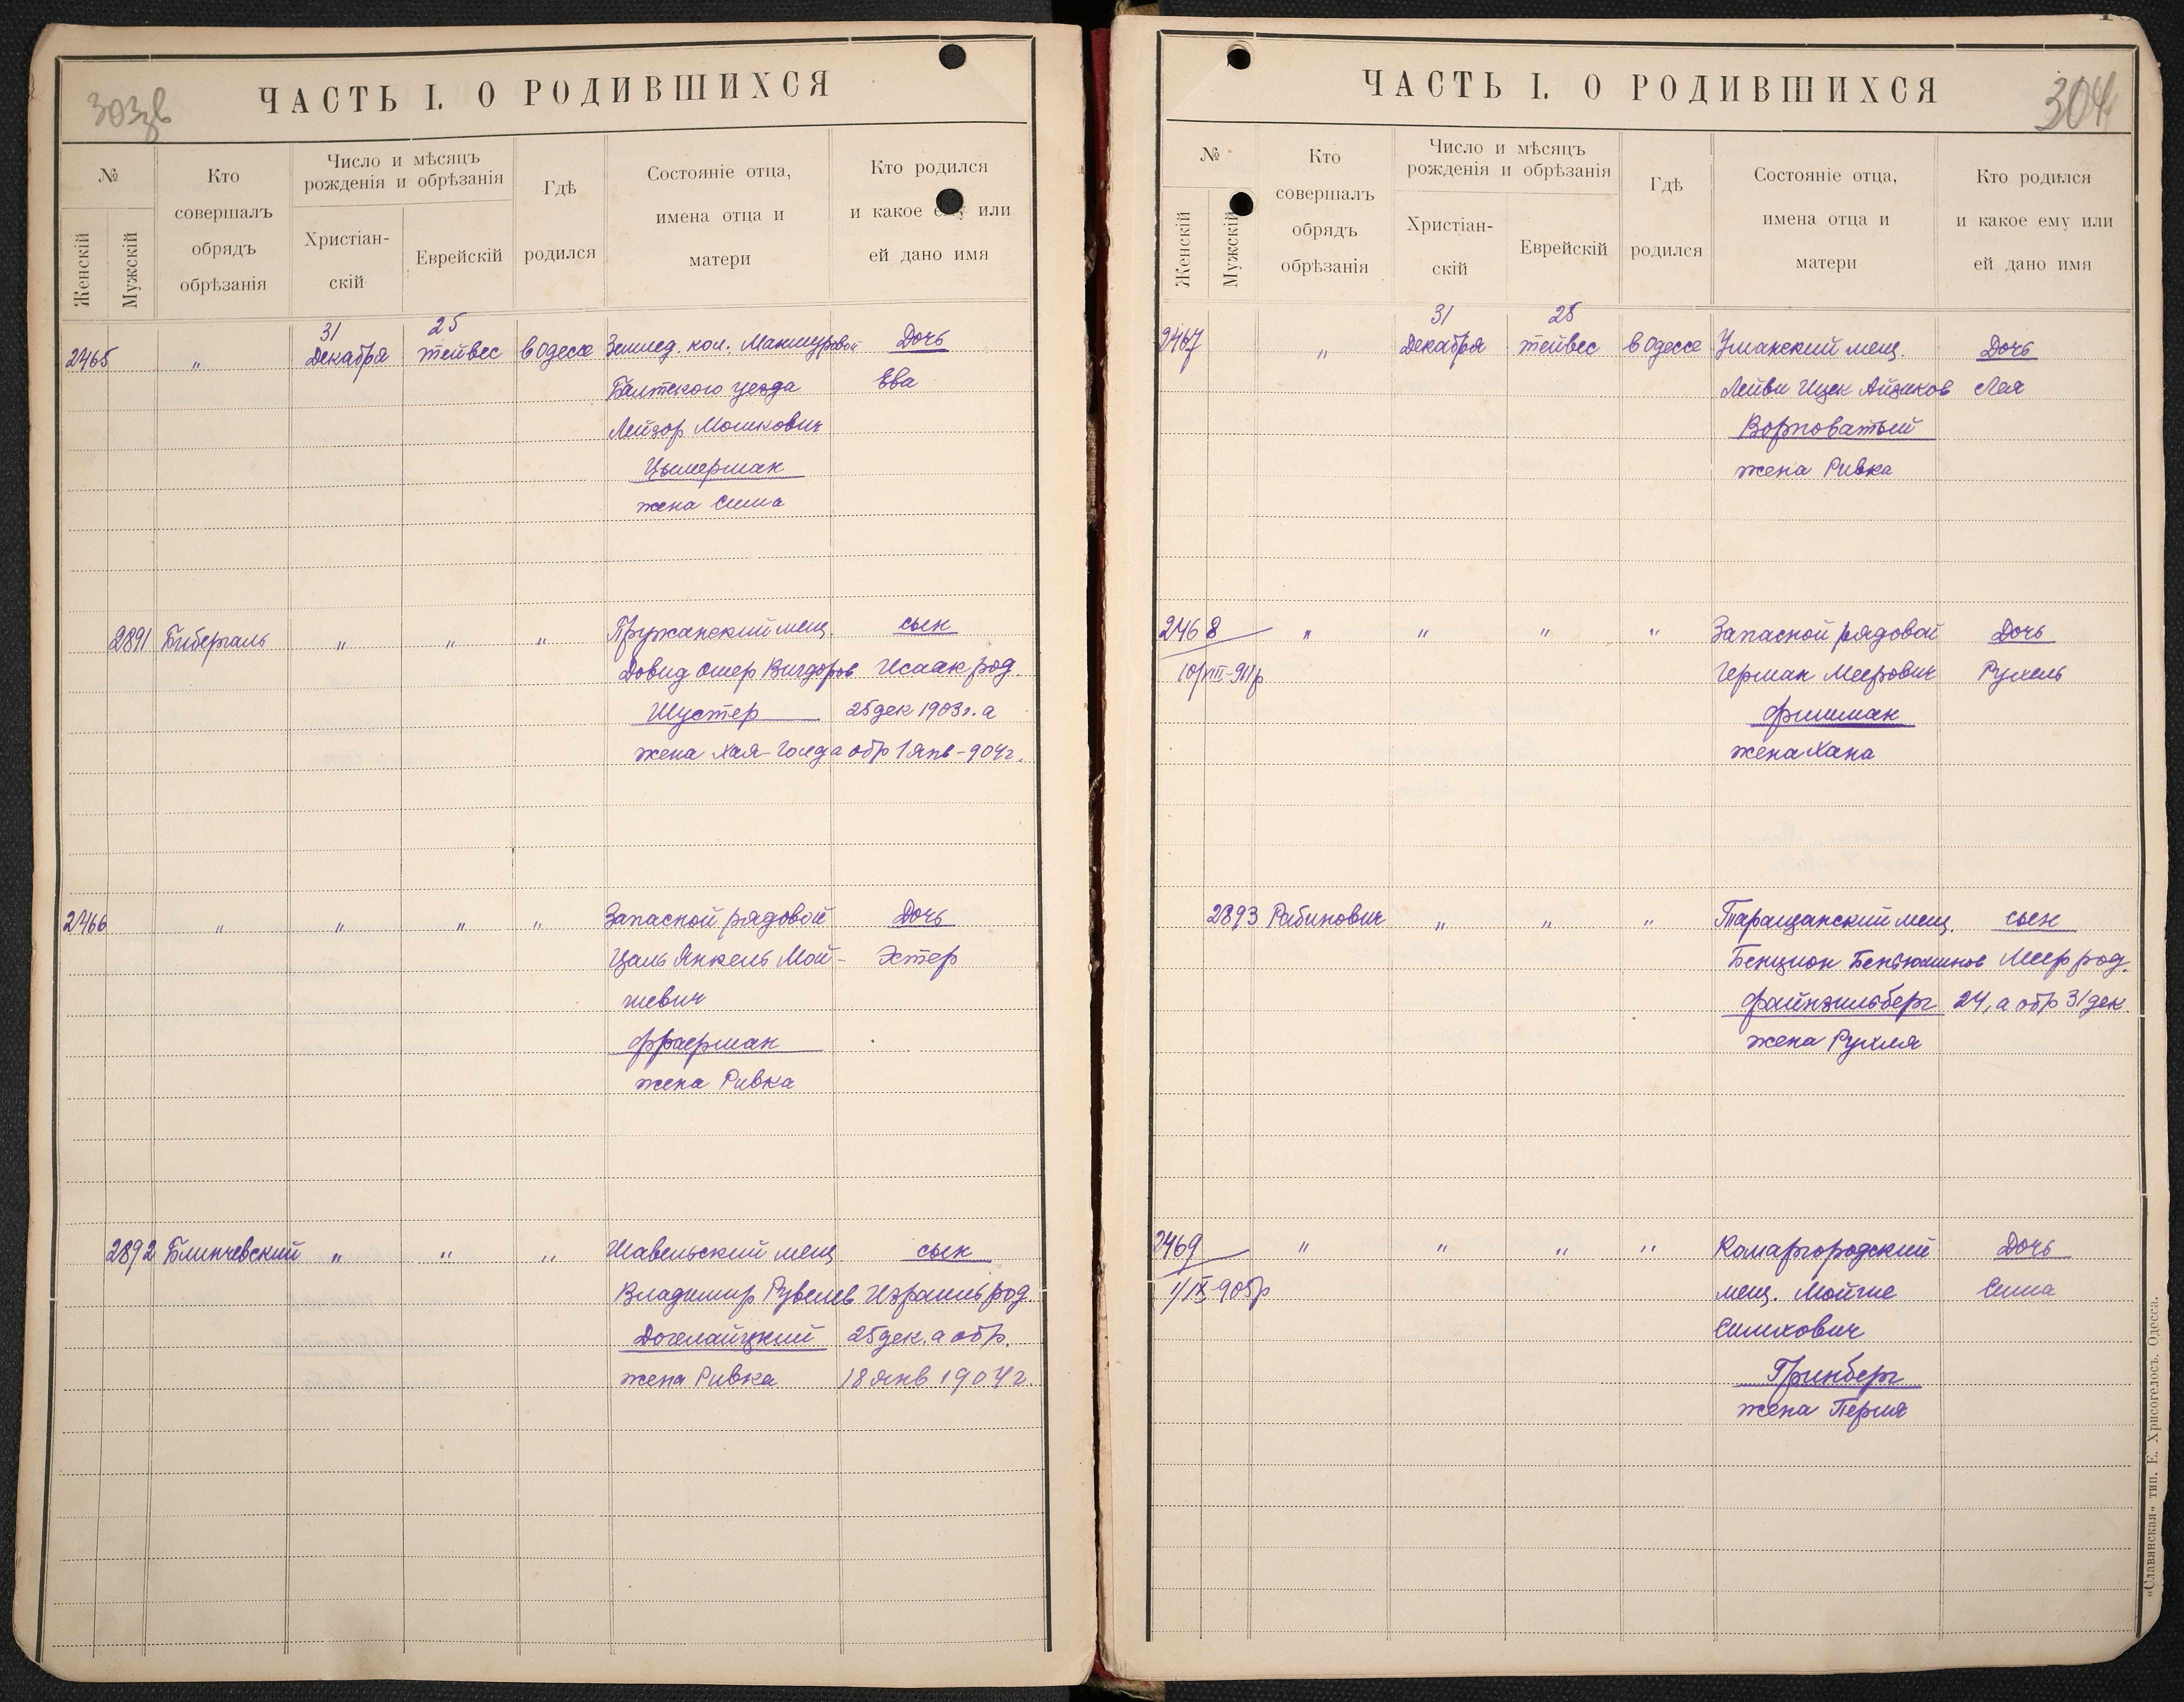 303зв
ЧАСТЬ I. О РОДИВШИХСЯ
№
Женскій
Мужскій
Кто
совершалъ
обрядъ
обрѣзанія
Число и мѣсяцъ
рожденія и обрѣзанія
Христіан-
скій
Еврейскій
Гдѣ
родился
Состояніе отца,
имена отца и
матери
Кто родился
и какое ему или
ей дано имя
31 25
2465 " Декабря тейвес в Одессе Землед. кол. Маншуровой Дочь
Балтского уезда Ева
Лейзор Мошкович
Цымерман
жена Сима
2891 Бибергаль " " " Пружанский мещ. сын
Довид Ошер Вигдоров Исаак род.
Шустер 25 дек 1903 г. а
жена Хая-Голда обр 1 янв-904 г.
2466 " " " " Запасной рядовой Дочь
Цаль Янкель Мой- Эстер
шевич
Фраерман
жена Ривка
2892 Блинчевский " " " Шавельский мещ сын
Владимир Рувелев Израиль род.
25 дек. а обр.
жена Ривка 18 янв 1904 г.
304
ЧАСТЬ I. О РОДИВШИХСЯ
№
Женскій
Мужскій
Кто
совершалъ
обрядъ
обрѣзанія
Число и мѣсяцъ
рожденія и обрѣзанія
Христіан-
скій
Еврейскій
Гдѣ
родился
Состояніе отца,
имена отца и
матери
Кто родился
и какое ему или
ей дано имя
31 25
2467 " Декабря тейвес в Одессе Уманский мещ. Дочь
Лейви Ицек Айзиков Лея
Ворноватый
жена Ривка
2468 " " " " Запасной рядовой Дочь
Герман Меерович Рухель
Фишман
жена Хана
2893 Рабинович " " " Таращанский мещ. сын
Бенцион Беньюминов Меер род.
Файнзильберг 24, а обр 31 дек.
жена Рухля
2469 " " " " Комаргородский Дочь
1/IX-905 р мещ. Мойше Сима
Симхович
Гринберг
жена Перля
«Славянская» тип. Е. Хрисогелосъ. Одесса.